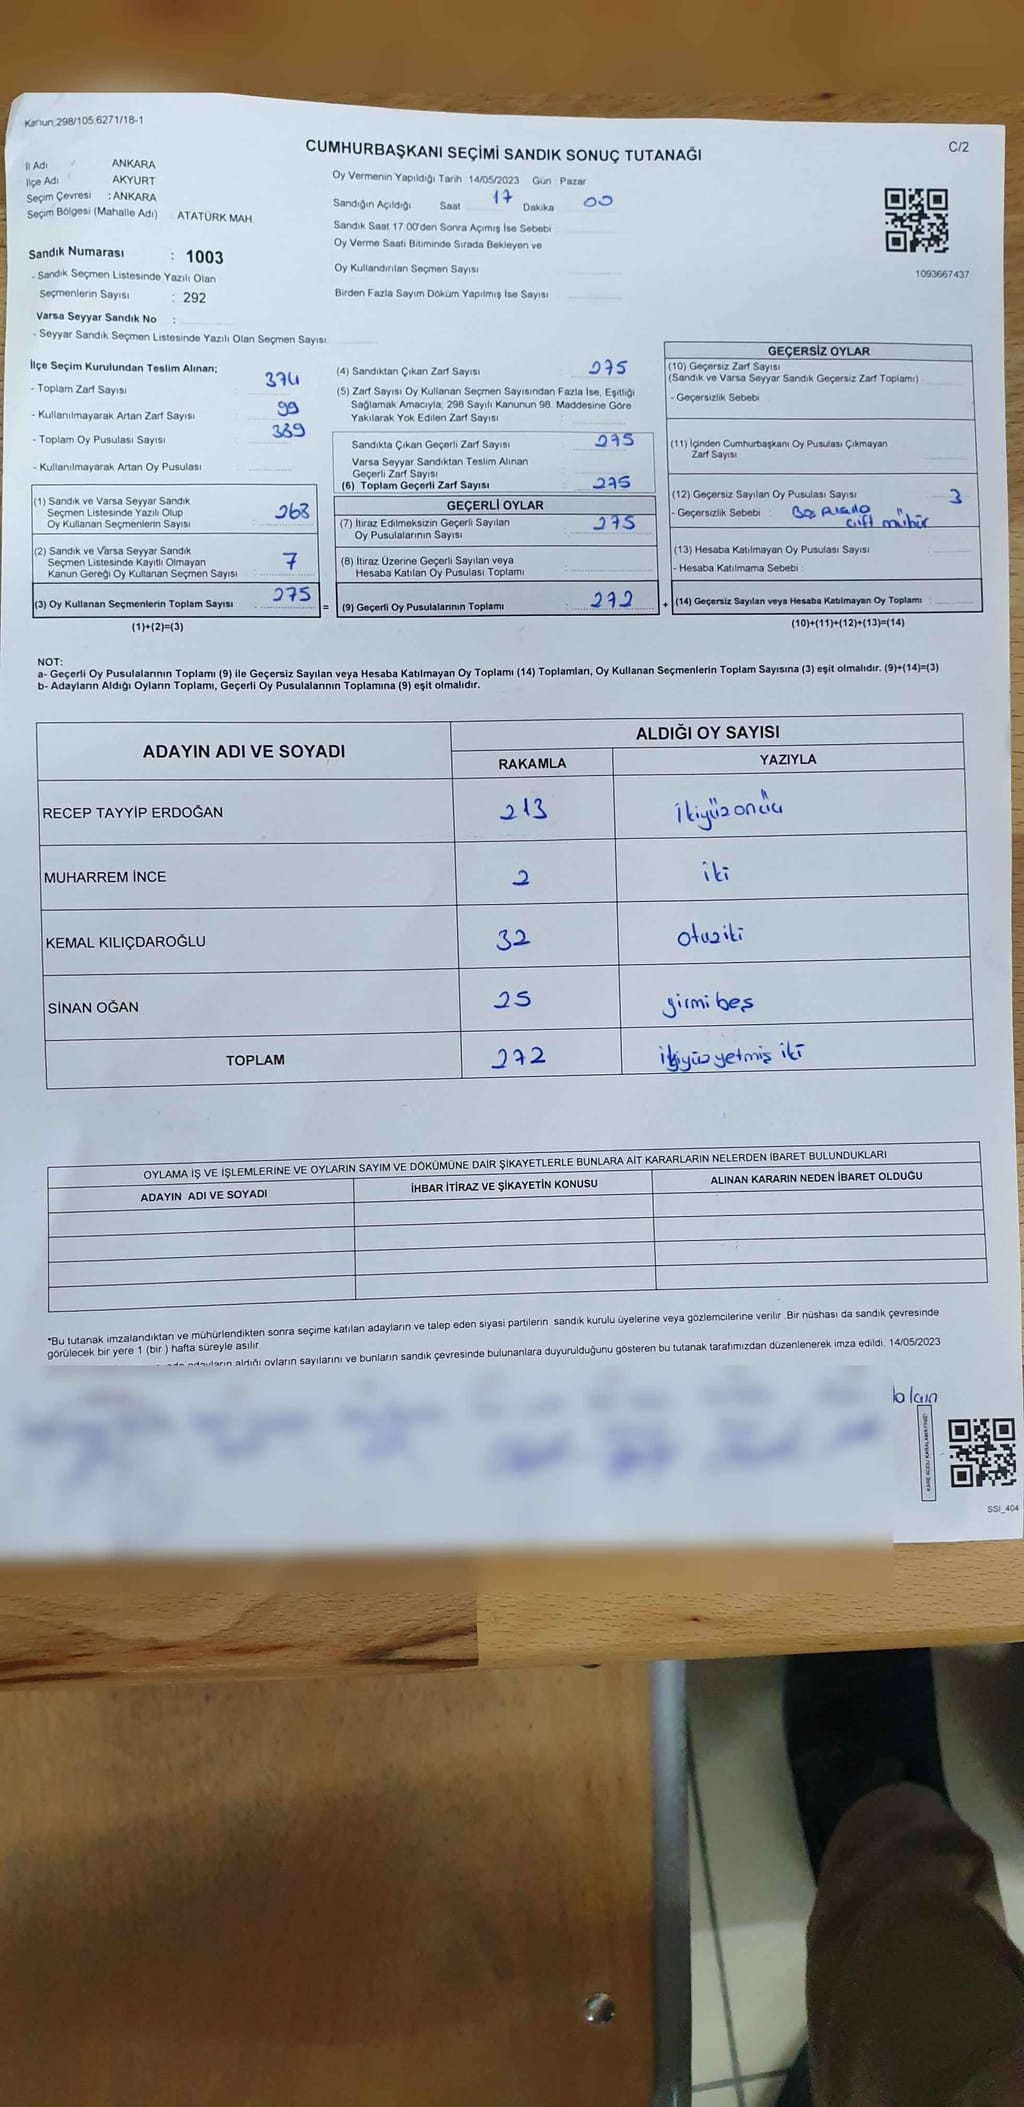 Kanun:298/105,6271/18-1
C/2
CUMHURBAŞKANI SEÇİMİ SANDIK SONUÇ TUTANAĞI
İl Adı ANKARA
İlçe Adı AKYURT
Seçim Çevresi : ANKARA
Seçim Bölgesi (Mahalle Adı) ATATÜRK MAH.
Oy Vermenin Yapıldığı Tarih 14/05/2023 Gün : Pazar
Sandığın Açıldığı Saat 17 Dakika 00
Sandık Saat 17:00'den Sonra Açımış İse Sebebi
Oy Verme Saati Bitiminde Sırada Bekleyen ve
Oy Kullandırılan Seçmen Sayısı
Birden Fazla Sayım Döküm Yapılmış İse Sayısı
1093667437
Sandık Numarası : 1003
- Sandık Seçmen Listesinde Yazılı Olan
Seçmenlerin Sayısı : 292
Varsa Seyyar Sandık No :
- Seyyar Sandık Seçmen Listesinde Yazılı Olan Seçmen Sayısı:
İlçe Seçim Kurulundan Teslim Alınan;
- Toplam Zarf Sayısı 374
- Kullanılmayarak Artan Zarf Sayısı 99
- Toplam Oy Pusulası Sayısı 389
- Kullanılmayarak Artan Oy Pusulası
(1) Sandık ve Varsa Seyyar Sandık
Seçmen Listesinde Yazılı Olup
Oy Kullanan Seçmenlerin Sayısı 268
(2) Sandık ve Varsa Seyyar Sandık
Seçmen Listesinde Kayıtlı Olmayan
Kanun Gereği Oy Kullanan Seçmen Sayısı 7
(3) Oy Kullanan Seçmenlerin Toplam Sayısı 275
(1)+(2)=(3)
(4) Sandıktan Çıkan Zarf Sayısı : 275
(5) Zarf Sayısı Oy Kullanan Seçmen Sayısından Fazla İse, Eşitliği
Sağlamak Amacıyla; 298 Sayılı Kanunun 98. Maddesine Göre
Yakılarak Yok Edilen Zarf Sayısı :
Sandıkta Çıkan Geçerli Zarf Sayısı : 275
Varsa Seyyar Sandıktan Teslim Alınan
Geçerli Zarf Sayısı
(6) Toplam Geçerli Zarf Sayısı 275
GEÇERLİ OYLAR
(7) İtiraz Edilmeksizin Geçerli Sayılan
Oy Pusulalarının Sayısı : 275
(8) İtiraz Üzerine Geçerli Sayılan veya
Hesaba Katılan Oy Pusulası Toplamı :
= (9) Geçerli Oy Pusulalarının Toplamı : 272 +
GEÇERSİZ OYLAR
(10) Geçersiz Zarf Sayısı
(Sandık ve Varsa Seyyar Sandık Geçersiz Zarf Toplamı)
- Geçersizlik Sebebi
(11) İçinden Cumhurbaşkanı Oy Pusulası Çıkmayan
Zarf Sayısı
(12) Geçersiz Sayılan Oy Pusulası Sayısı 3
- Geçersizlik Sebebi :
çift mühür
(13) Hesaba Katılmayan Oy Pusulası Sayısı
- Hesaba Katılmama Sebebi :
(14) Geçersiz Sayılan veya Hesaba Katılmayan Oy Toplamı :
(10)+(11)+(12)+(13)=(14)
NOT:
a- Geçerli Oy Pusulalarının Toplamı (9) ile Geçersiz Sayılan veya Hesaba Katılmayan Oy Toplamı (14) Toplamları, Oy Kullanan Seçmenlerin Toplam Sayısına (3) eşit olmalıdır. (9)+(14)=(3)
b- Adayların Aldığı Oyların Toplamı, Geçerli Oy Pusulalarının Toplamına (9) eşit olmalıdır.
ADAYIN ADI VE SOYADI
ALDIĞI OY SAYISI
RAKAMLA YAZIYLA
RECEP TAYYİP ERDOĞAN 213 ikiyüzonüç
MUHARREM İNCE 2 iki
KEMAL KILIÇDAROĞLU 32 otuziki
SİNAN OĞAN 25 yirmibeş
TOPLAM 272 ikiyüzyetmiş iki
OYLAMA İŞ VE İŞLEMLERİNE VE OYLARIN SAYIM VE DÖKÜMÜNE DAİR ŞİKAYETLERLE BUNLARA AİT KARARLARIN NELERDEN İBARET BULUNDUKLARI
ADAYIN ADI VE SOYADI İHBAR İTİRAZ VE ŞİKAYETİN KONUSU ALINAN KARARIN NEDEN İBARET OLDUĞU
*Bu tutanak imzalandıktan ve mühürlendikten sonra seçime katılan adayların ve talep eden siyasi partilerin sandık kurulu üyelerine veya gözlemcilerine verilir. Bir nüshası da sandık çevresinde
görülecek bir yere 1 (bir ) hafta süreyle asılır.
aldığı oyların sayılarını ve bunların sandık çevresinde bulunanlara duyurulduğunu gösteren bu tutanak tarafımızdan düzenlenerek imza edildi. 14/05/2023
KARE KODU KARALAMAYINIZ!
SSI_404